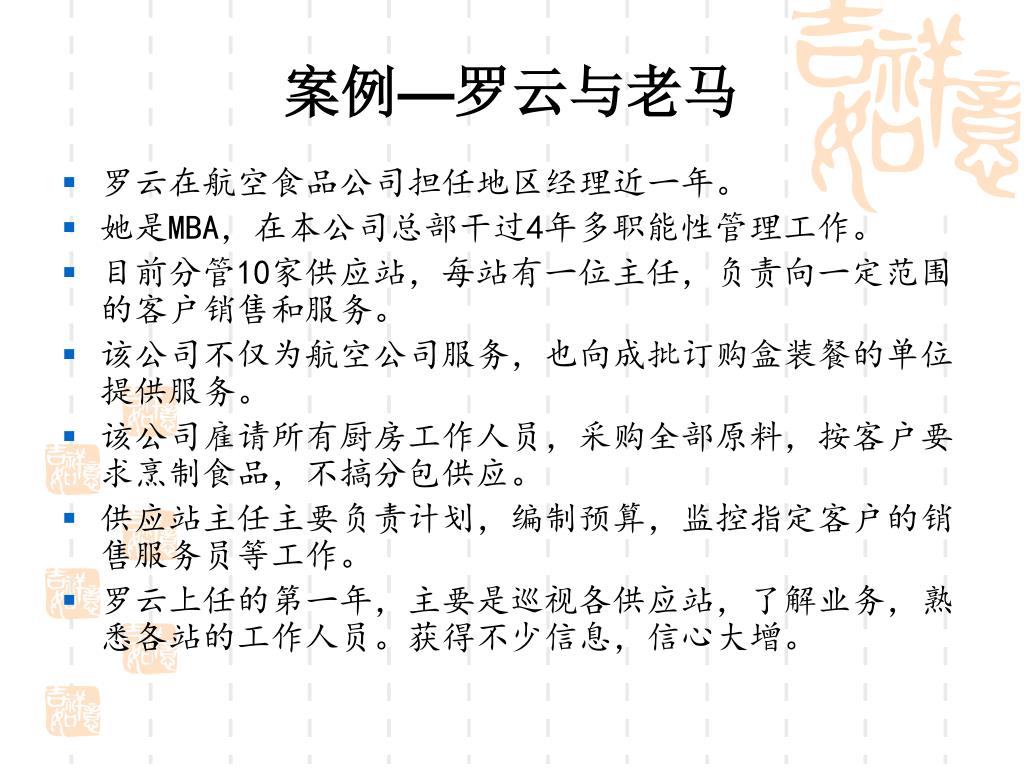 吉祥如意
案例—罗云与老马
罗云在航空食品公司担任地区经理近一年。
她是MBA，在本公司总部干过4年多职能性管理工作。
目前分管10家供应站，每站有一位主任，负责向一定范围
的客户销售和服务。
该公司不仅为航空公司服务，也向成批订购盒装餐的单位
提供服务。
该公司雇请所有厨房工作人员，采购全部原料，按客户要
求烹制食品，不搞分包供应。
供应站主任主要负责计划，编制预算，监控指定客户的销
售服务员等工作。
罗云上任的第一年，主要是巡视各供应站，了解业务，熟
悉各站的工作人员。获得不少信息，信心大增。
吉祥如意
吉祥如意
吉祥如意